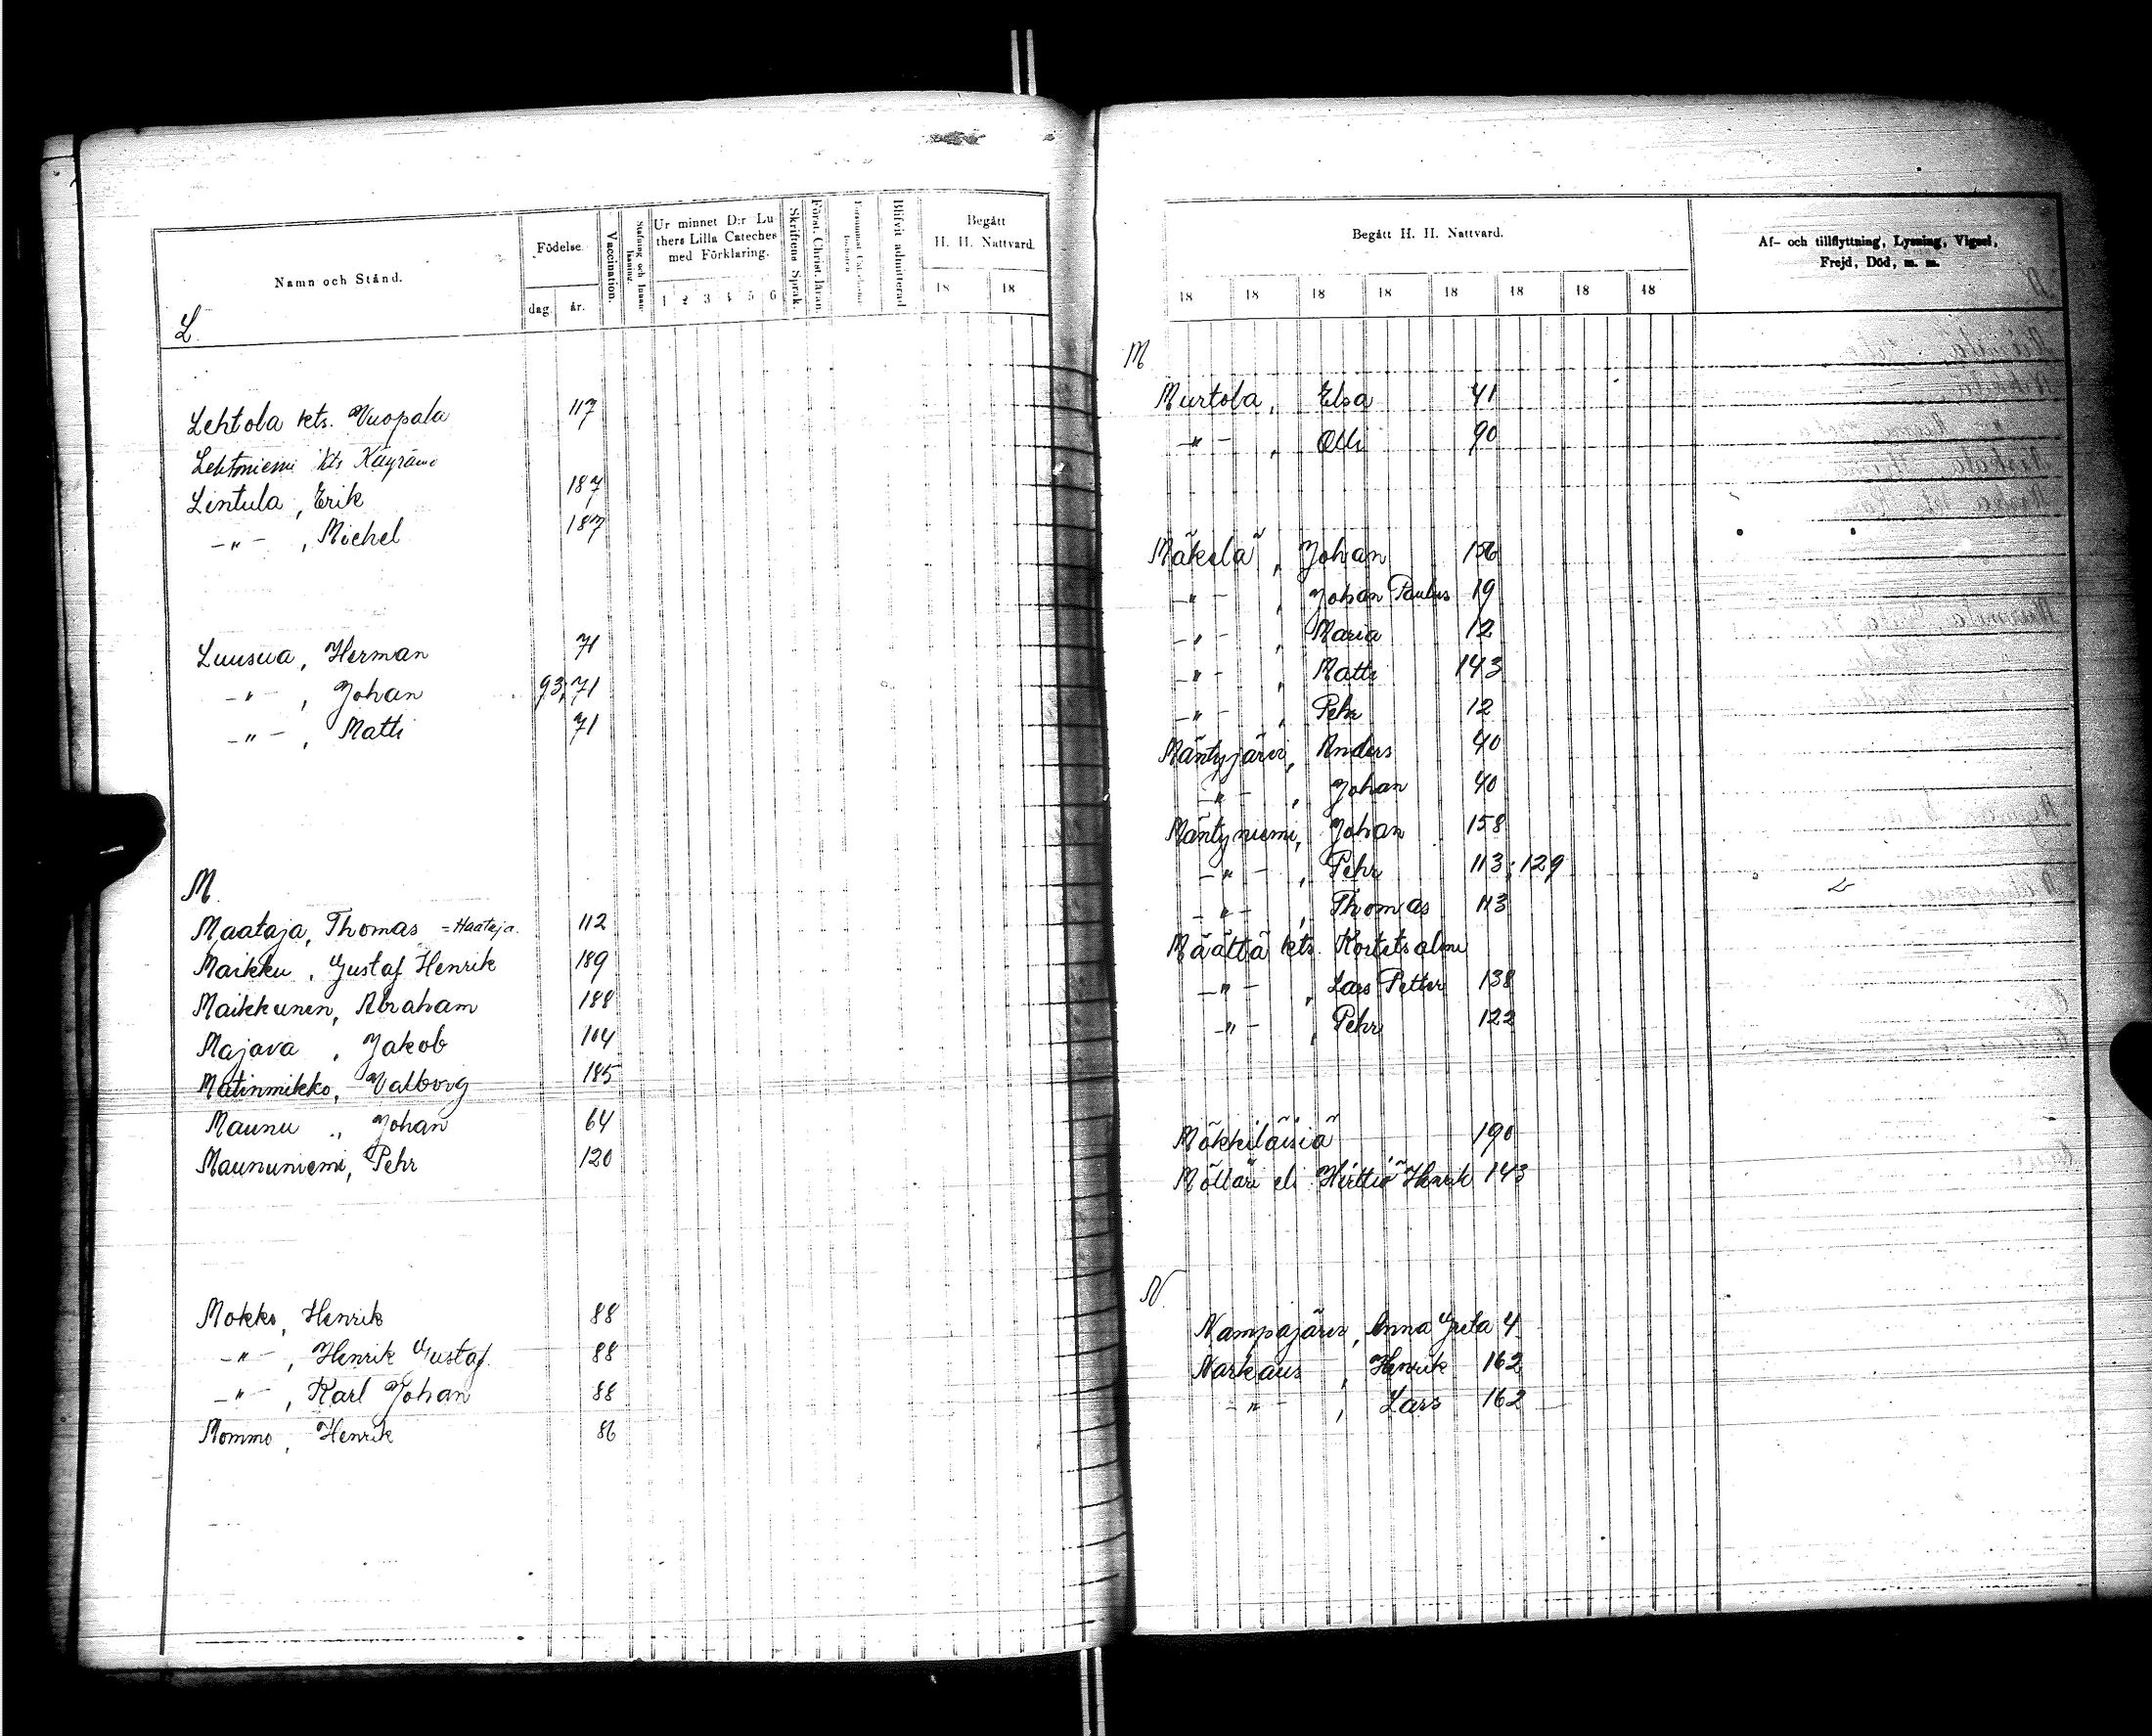 Namn och Stånd.
Födelse.
dag.
år.
Vaccination.
Stafning och Innanläsning.
Ur minnet D:r Luthers Lilla Cateches med Förklaring.
1 2 3 4 5 6
Skriftens Språk.
Först. Christ. läran.
Blifvit admitterad
Begått
H. H. Nattvard.
18 18
L.
Lehtola kts. Vuopala 117
Lehtoniemi kts Käyrämö
Lintula, Erik 187
-"- , Michel 187
Luusua, Herman 71
-"- , Johan 93; 71
-"- , Matti 71
M.
Maataja, Thomas = Haataja. 112
Maikku, Gustaf Henrik 189
Maikkunen, Abraham 188
Majava, Jakob 104
Matinmikko, Valborg 185
Maunu, Johan 64
Maununiemi, Pehr 120
Mokko, Henrik 88
-"- , Henrik Gustaf. 88
-"- , Karl Johan 88
Mommo, Henrik 86
Begått H. H. Nattvard.
18 18 18 18 18 18 18 18
Af- och tillflyttning, Lysning, Vigsel,
Frejd, Död, m. m.
M
Murtola, Elsa 41
-"- , Olli 90
Mäkelä, Johan 156
-"- , Johan Paulus 19
-"- , Maria 12
-"- , Matti 143
-"- , Pehr 12
Mäntyjärvi, Anders 40
-"- , Johan 40
Mäntyniemi, Johan 158
-"- , Pehr 113; 129
-"- , Thomas 113
Määttä kts. Kortetsalmi
-"- , Lars Petter 138
-"- , Pehr 122
Mökkiläisiä 190
Mölläri eli Hirttiö Henrik 143
N.
Nampajärvi, Anna Greta 4
Narkaus, Henrik 162
-"- , Lars 162